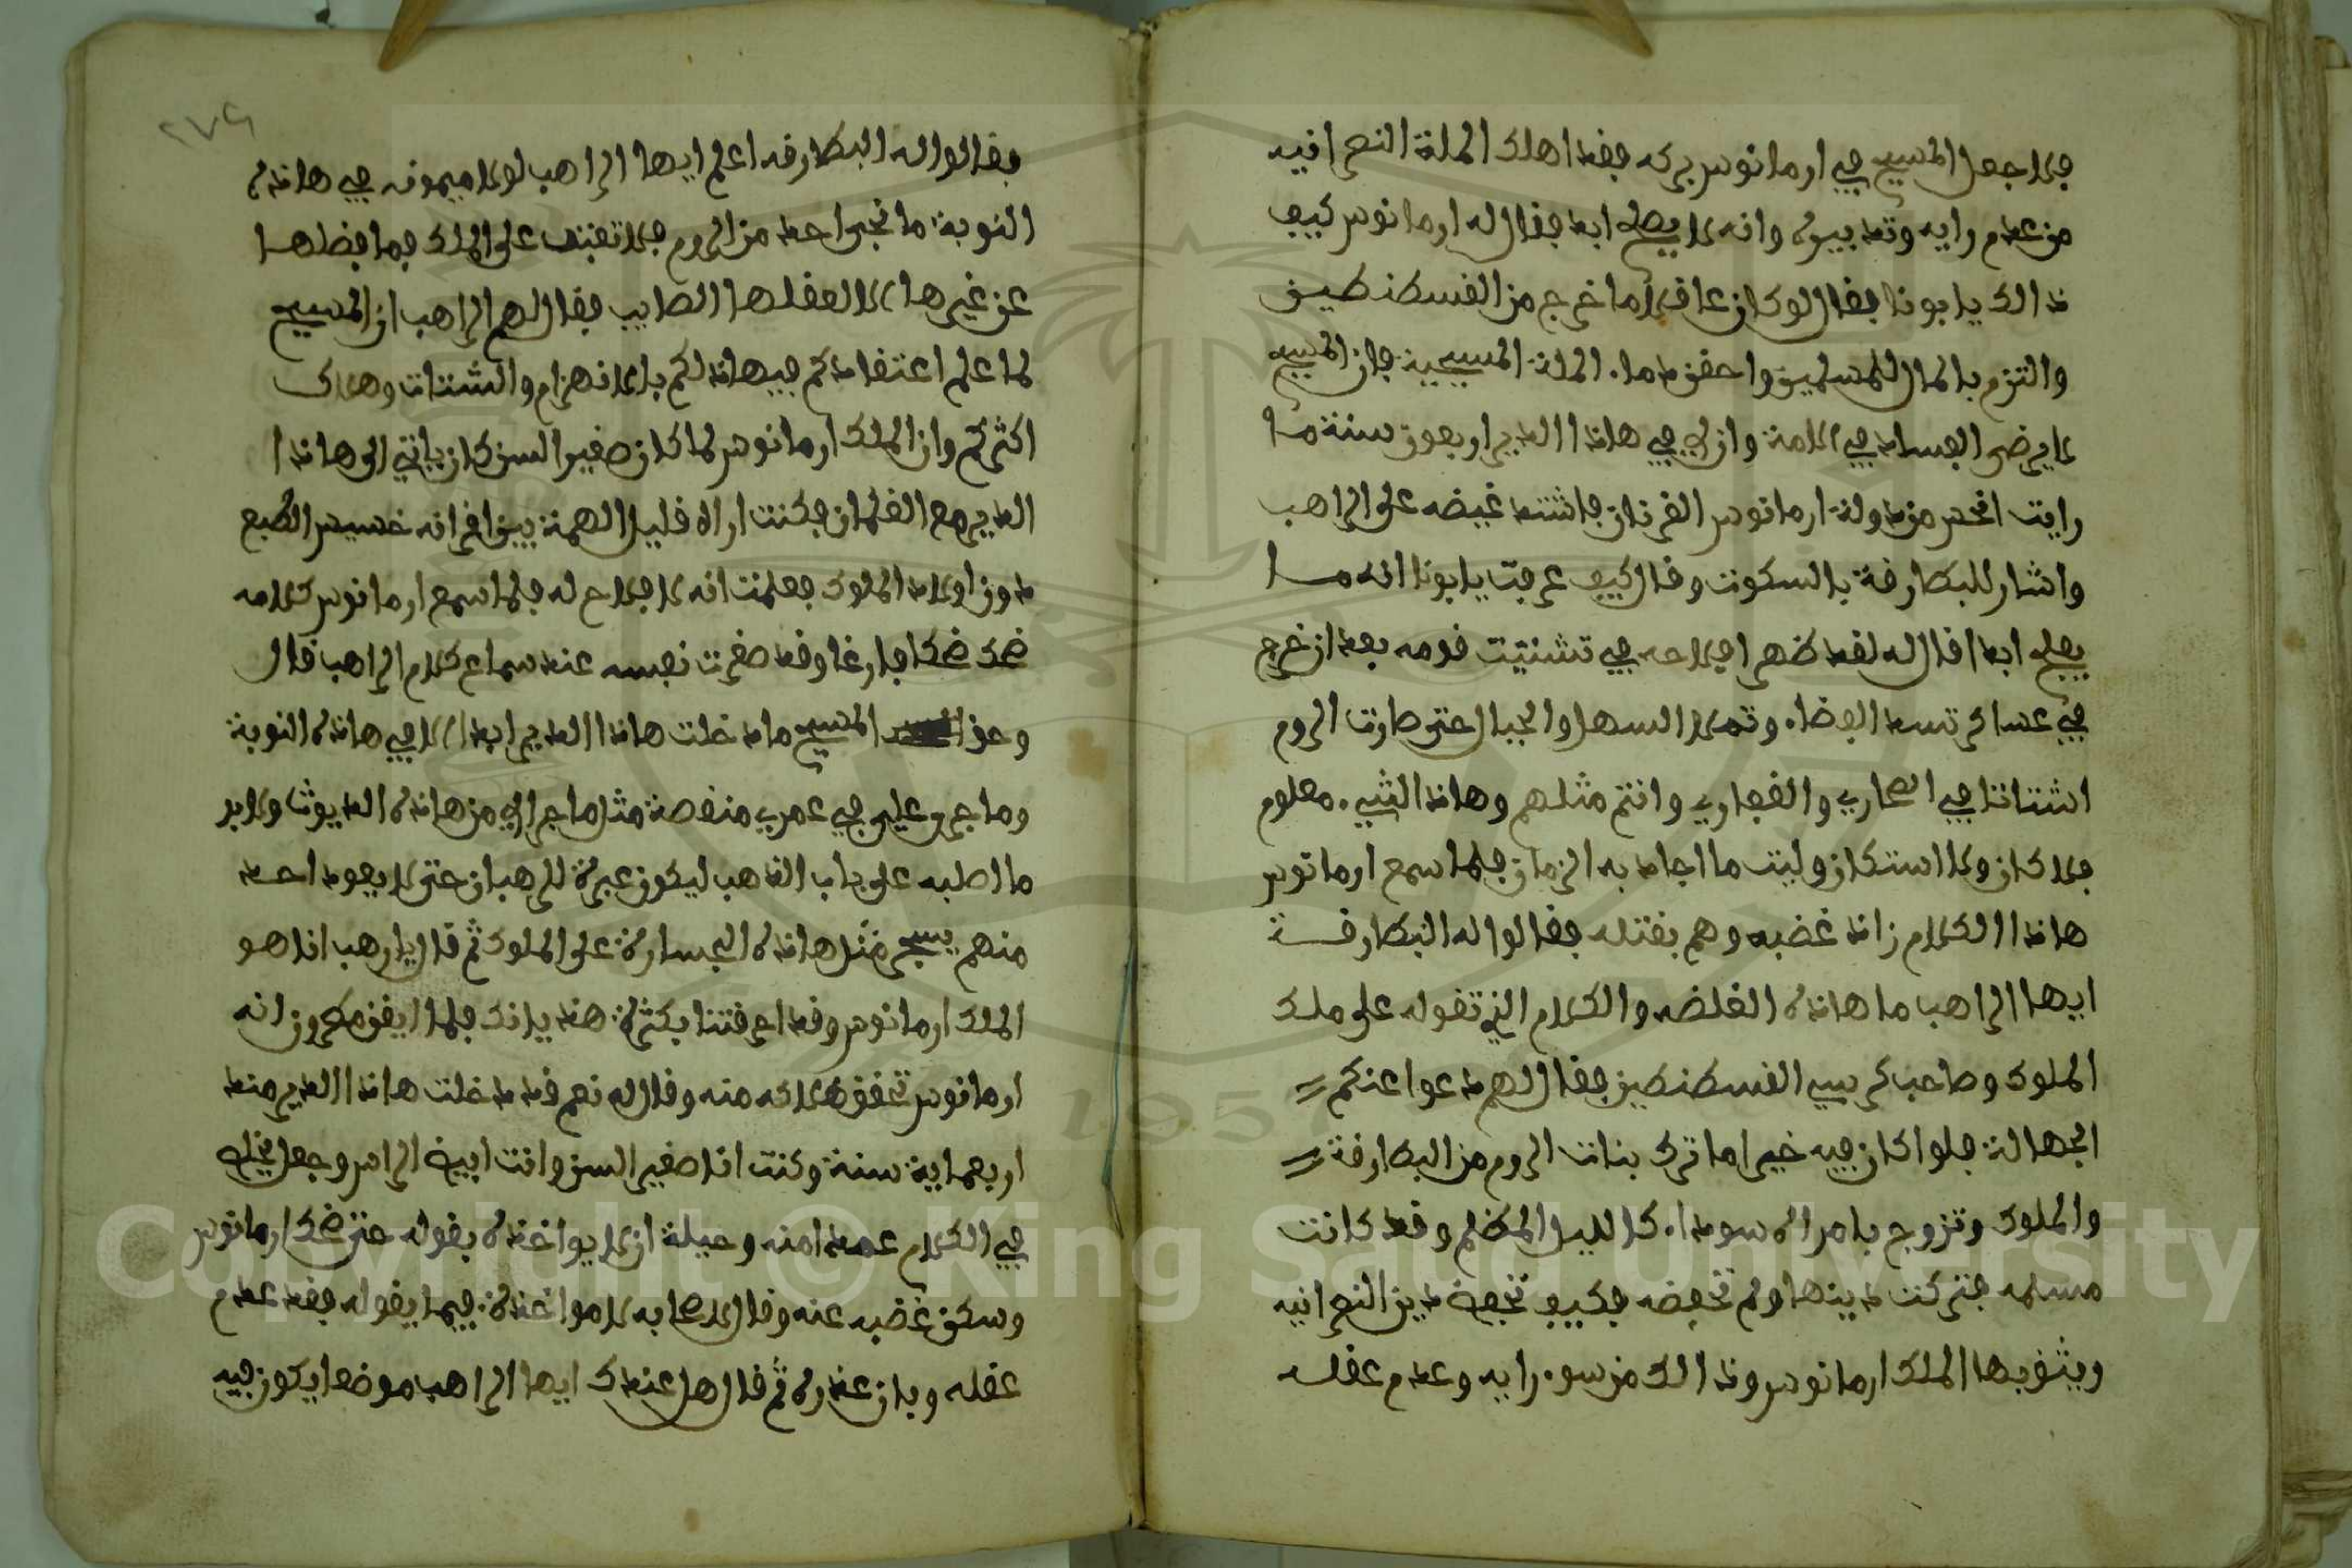 فلا جعل المسيح في ارمانوس بركه فقد اهلك الملة النصرانيه
من عدم رايه وتدبيره وانه لا يصلح ابدا فقال له ارمانوس كيف
ذالك يابونا فقال لو كان عاقلا ما خرج من القسطنطين
والتزم بالمال للمسلمين واحقن دماء الملة المسيحية فان المسيح
لا يرضى الفساد في الامة وان لي في هاذا الدير اربعون سنة ما
رايت انحس من دولة ارمانوس القرنان فاشتد غيضه على الراهب
واشار للبطارقة بالسكوت وقال كيف عرفت يابونا انه ما
يفلح ابدا قال له لقد ظهر افلاحه في تشتيت قومه بعد ان خرج
في عساكر تسد الفضاء وتملا السهل والجبال حتى صارت الروم
اشتاتا في الصحاري والقفاري وانتم مثلهم وهاذا الشيء معلوم
فلا كان ولا استكان وليت ما اجاد به الزمان فلما سمع ارمانوس
هاذا الكلام زاد غضبه وهم بقتله فقالوا له البطارقة
ايها الراهب ما هاذه الغلضه والكلام الذي تقوله على ملك
الملوك وصاحب كرسي القسطنطين فقال لهم دعوا عنكم
الجهالة فلو كان فيه خير اما ترك بنات الروم من البطارقة
والملوك وتزوج بامراه سوداء كالليل المظلم وقد كانت
مسلمه فتركت دينها ولم تحفضه فكيف تحفض دين النصرانيه
ويثق بها الملك ارمانوس وذالك من سوء رايه وعدم عقله
٢٧٩
فقالوا له البطارقه اعلم ايها الراهب لولا ميمونه في هاذه
النوبة ما نجى احد من الروم فلا تعتب على الملك فما فضلها
عن غيرها الا لعقلها الصايب فقال لهم الراهب ان المسيح
لما علم اعتقادكم فيها اذلكم بالانهزام والشتات وهلاك
اكثركم وان الملك ارمانوس لما كان صغير السن كان ياتي الى هاذا
الدير مع الغلمان فكنت اراه قليل الهمة بين اقرانه خسيس الطبع
دون اولاد الملوك فعلمت انه لا فلاح له فلما سمع ارمانوس كلامه
ضحك ضحكا فارغا وقد صغرت نفسه عند سماع كلام الراهب قال
وحق المسيح ما دخلت هاذا الدير ابدا الا في هاذه النوبة
وما جرى علي في عمري منغصة مثل ما جرا لي من هاذه الديوثا ولا بد
ما اصلبه على باب الذهب ليكون عبرة للرهبان حتى لا يعود احد
منهم يسجر مثل هاذه الجسارة على الملوك ثم قال يا رهب انا هو
الملك ارمانوس وقد احرقتنا بكثرة هذيانك فلما ايقن مكرون انه
ارمانوس تحقق هلاكه منه وقال له نعم قد دخلت هاذا الدير منذ
اربعماية سنة وكنت انا صغير السن وانت ابيض الراس وجعل يخلط
في الكلام عمدا منه وحيلة ان لا يواخذه بقوله حتى ضحك ارمانوس
وسكن غضبه عنه وقال لاصحابه لا مواخذة فيما يقوله فقد عدم
عقله وبان عذره ثم قال هل عندك ايها الراهب موضعا يكون فيه